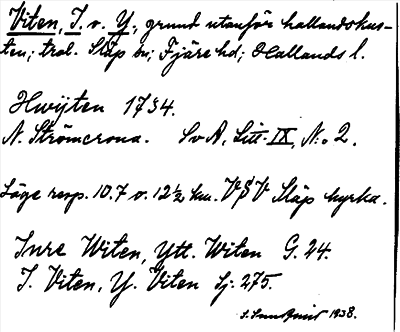 Viten, I. o. Y., grund utanför hallandskus-
ten; trol. Släp sn; Fjäre hd; Hallands l.
Hwijten 1734.
N. Strömcrona. SvA, Litt. IX, N:o 2.
Läge resp. 10.7 o. 12½ km. V§V Släp kyrka.
Inre Witen, Ytt. Witen G. 24.
I. Viten, Y. Viten Sj. 275.
1938.